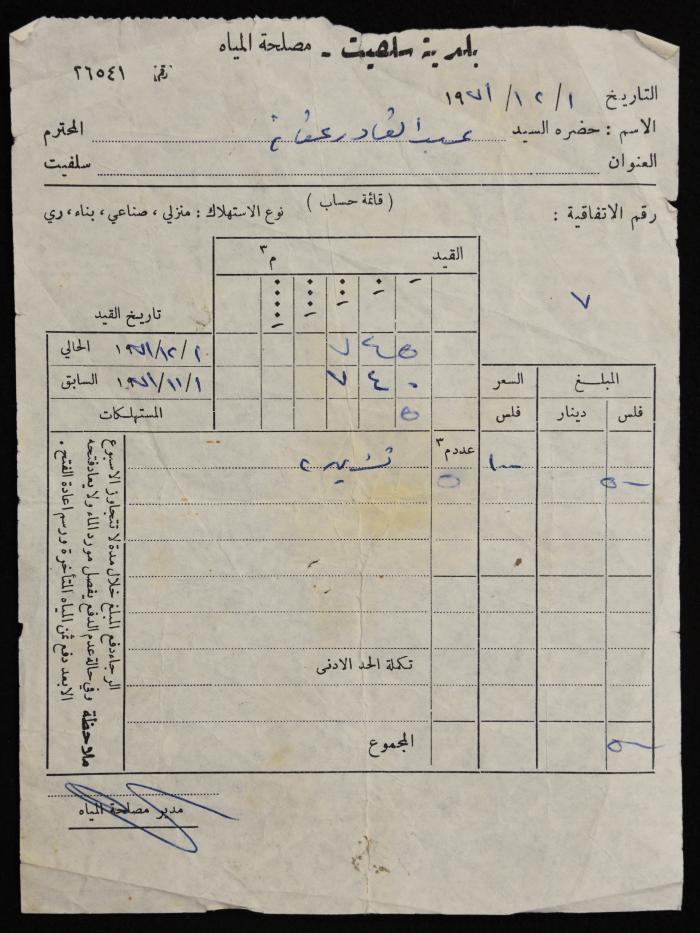 بلدية سلفيت - مصلحة المياه
رقم ٢٦٥٤١
التاريخ ١ / ١٢ / ١٩٧١
الاسم : حضره السيد عبد القادر عفانة المحترم
العنوان سلفيت
( قائمة حساب )
رقم الاتفاقية : نوع الاستهلاك : منزلي ، صناعي ، بناء ، ري
٧
القيد م٣
تاريخ القيد
١ ١٠ ١٠٠ ١٠٠٠ ١٠٠٠٠
٧٤٥ ١٩٧١/١٢/١ الحالي
٧٤٠ ١٩٧١/١١/١ السابق
٥ المستهلكات
المبلغ السعر
فلس دينار فلس
عدد م٣
١٠٠ تشرين ٢
٥٠٠ ٥
تكملة الحد الادنى
المجموع ٥٠٠
ملاحظة
الرجاء دفع المبلغ خلال مدة لا تتجاوز الاسبوع
وفي حالة عدم الدفع يفصل مورد الماء ولا يعاد فتحه
الا بعد دفع ثمن المياه المتأخرة ورسم اعادة الفتح .
مدير مصلحة المياه